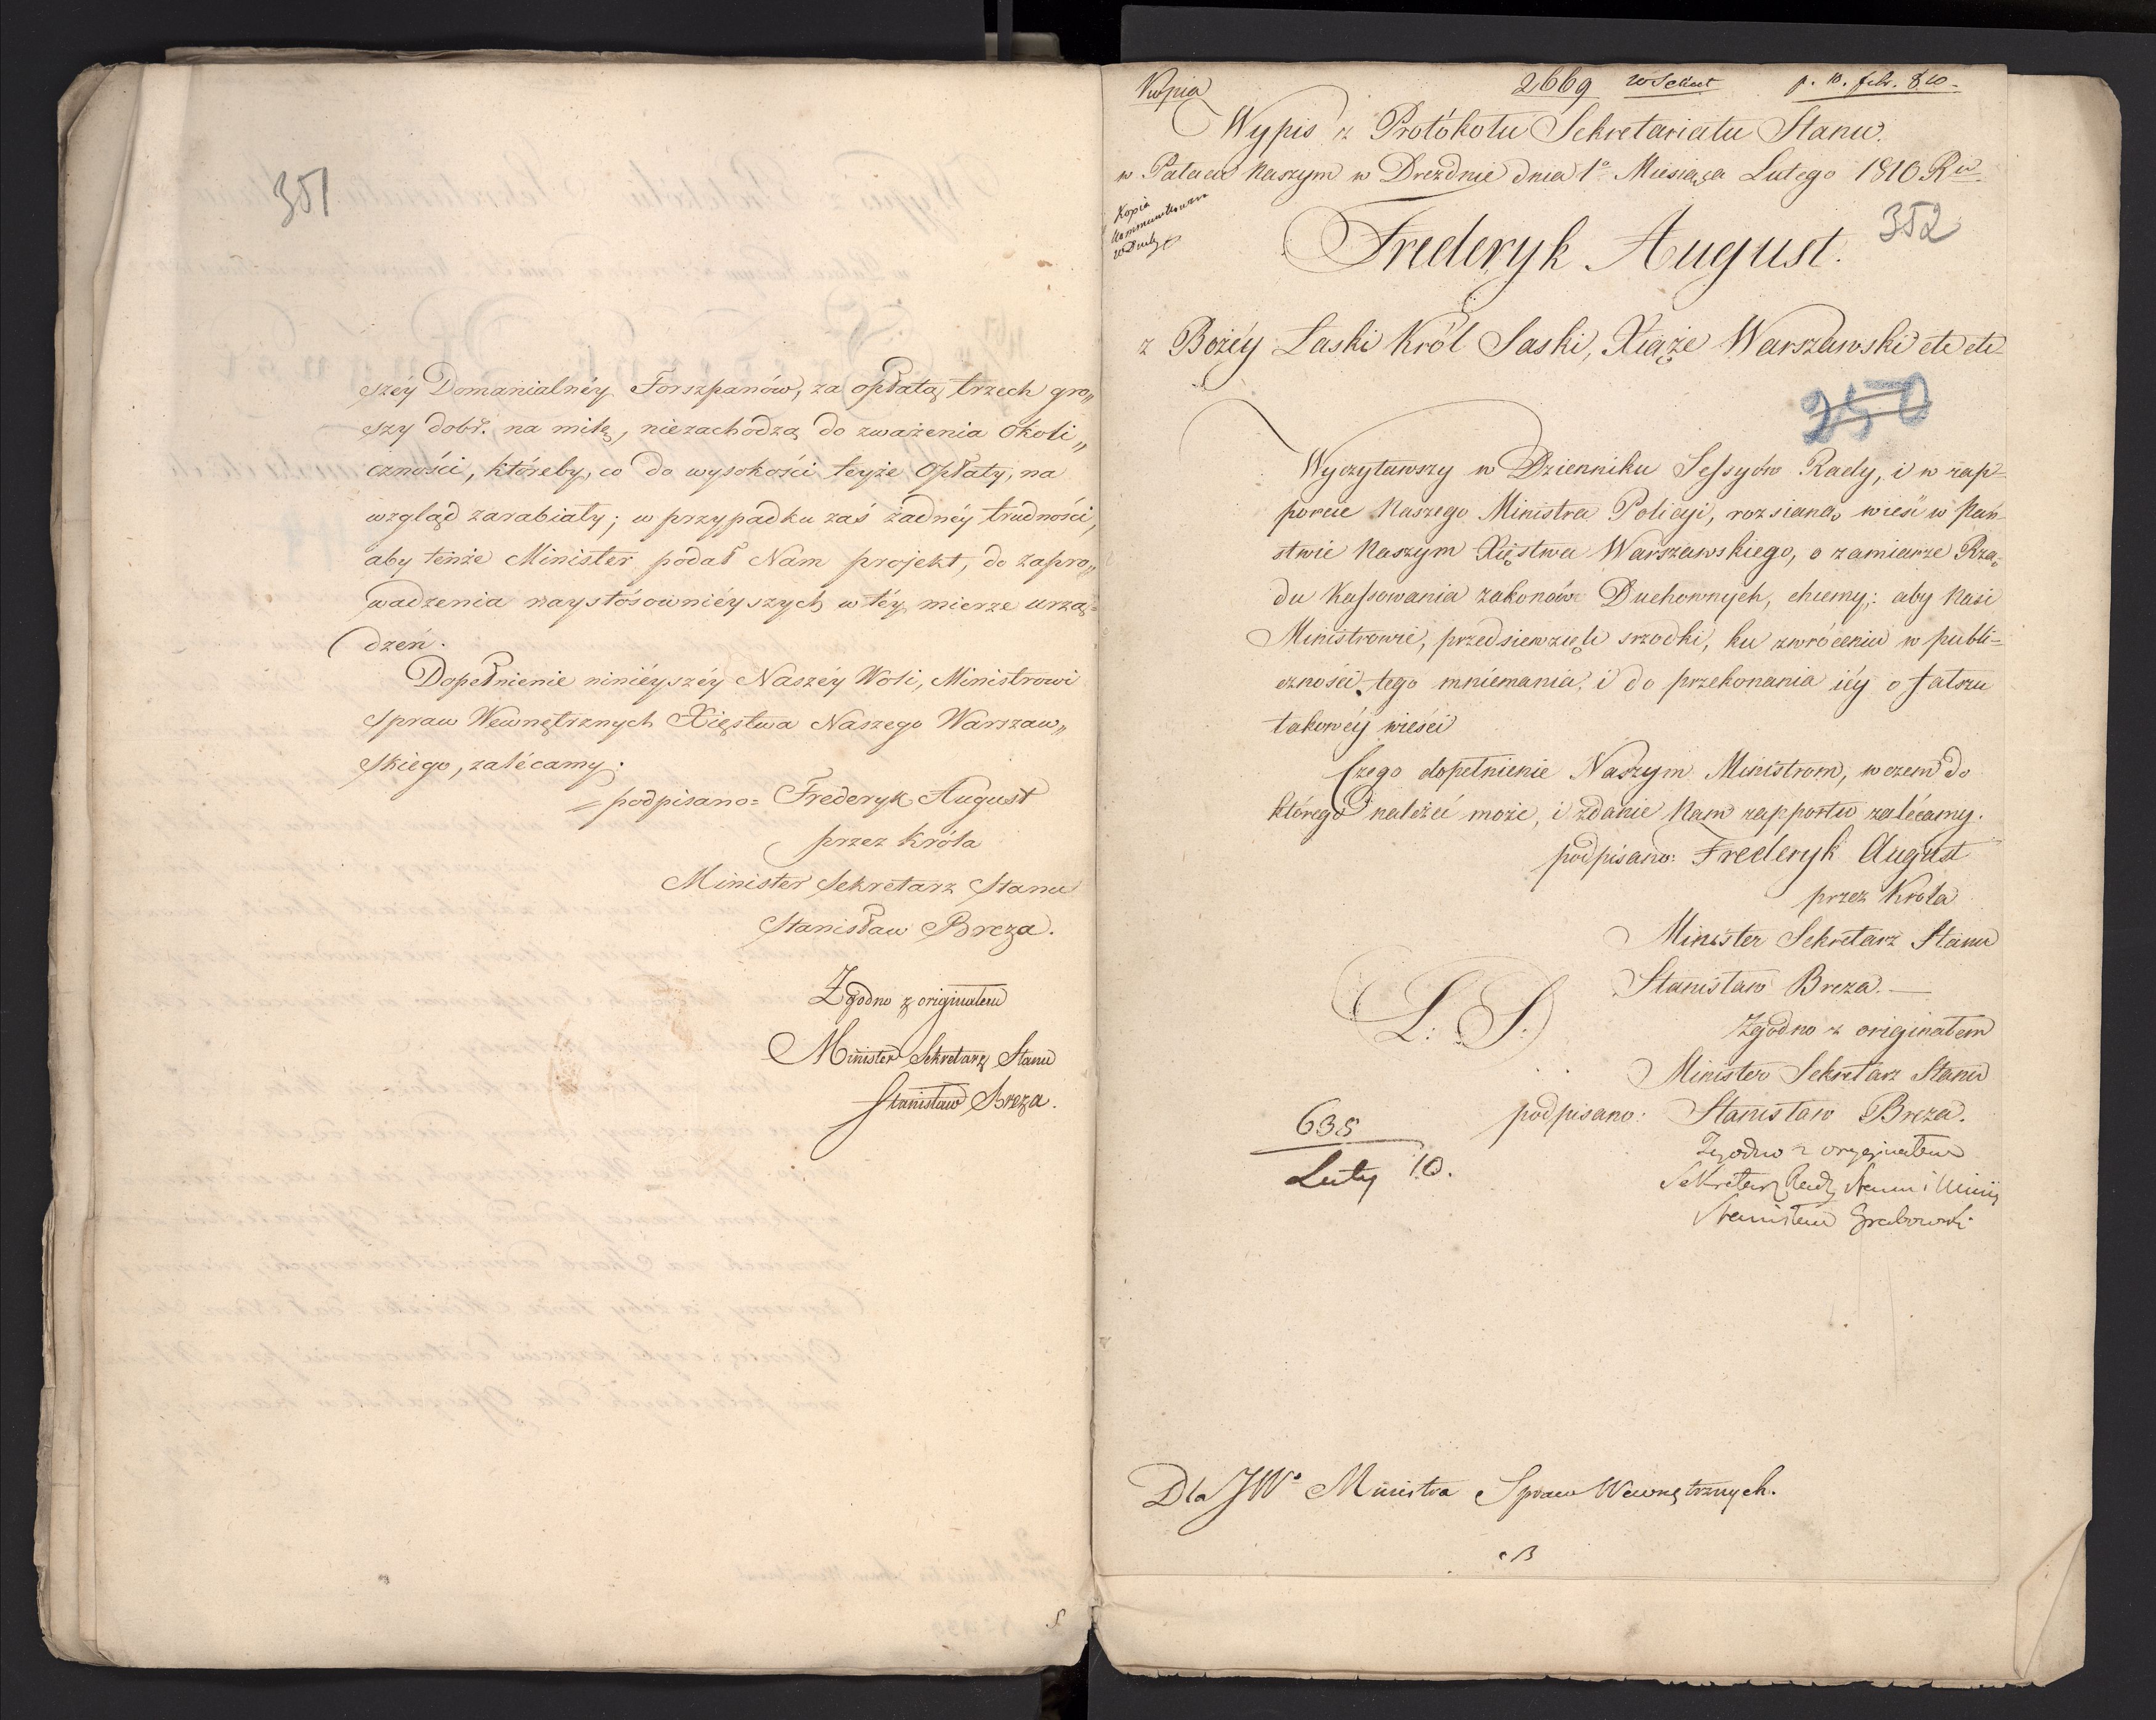 351
széy Domanialnéy Forszpanów, za opłatą trzech gro„
szy dobr. na milę, niezachodzą do zważenia okoli„
czności, któreby, co do wysokości teyże Opłaty, na
wzgląd zarabiały; w przypadku zaś żadnéy trudności,
aby tenże Minister podał Nam projekt, do zapro„
wadzenia naystósowniéyszych w téy mierze urzą=
dzeń.
Dopełnienie ninieyszéy Naszéy Woli, Ministrowi
Spraw Wewnętrznych Xięstwa Naszego Warszaw„
skiego, zalécamy.
= podpisano = Frederyk August
przez Króla
Minister Sekretarz Stanu
Stanisław Breza.
Zgodno z originałem
Minister Sekretarz Stanu
Stanisław Breza.
Kopia 2669 p. 10. febr. 810.
Wypis z Protókołu Sekretariatu Stanu.
w Pałacu Naszym w Dreznie dnia 1º Miesiąca Lutego 1810 Ru.
Kopia
352
Frederyk August.
z Bożéy Łaski Król Saski, Xiąże Warszawski etc etc
250
Wyczytawszy w Dzienniku Sessyów Rady, i w rap=
porcie Naszego Ministra Policyi, rozsianą wieść w Pań=
stwie Naszym Xięstwa Warszawskiego, o zamiarze Rzą=
du Kassowania zakonów Duchownych, chcemy: aby Nasi
Ministrowie, przedsiewzięli srzodki, ku zwróceniu w publi=
czności tego mniémania, i do przekonania iéy o fałszu
takowéy wieści
Czego dopełnienie Naszym Ministrom, w czem do
którego należéć może, i zdanie Nam rapportu zalécamy.
podpisano: Frederyk August
przez Króla
Minister Sekretarz Stanu
Stanisław Breza.
L: S:
Zgodno z originałem
Minister Sekretarz Stanu
podpisano: Stanisław Breza.
638
Luty 10.
Zgodno z oryginałem
Sekretarz Rady Stanu i Minis
Stanisław Grabowski
Dla JWº Ministra Spraw Wewnętrznych.